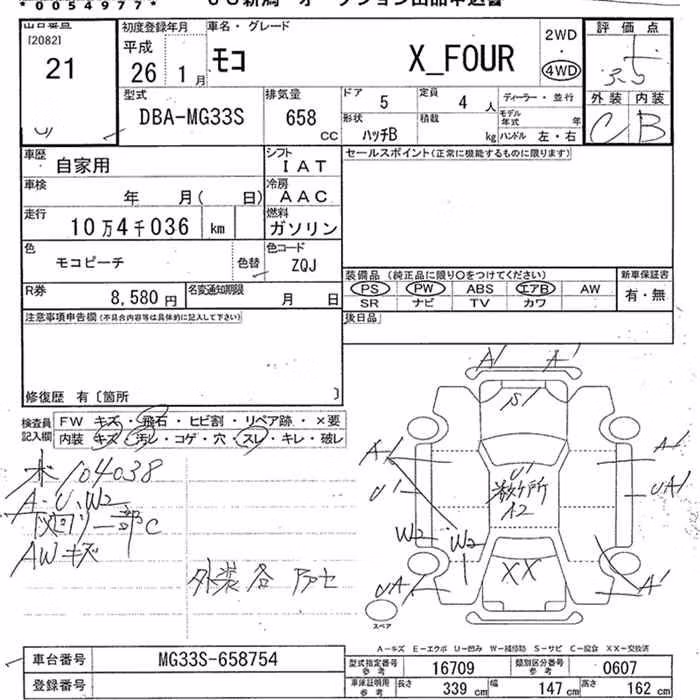 *0054977*
出品番号 初度登録年月 車名・グレード 2WD 評価点
[2082] 平成 ・
21 26 1月 モコ X_FOUR 4WD 3.5
型式 排気量 ドア 5 定員 4 人 ディーラー・並行 外装 内装
DBA-MG33S 658 CC 形状 ハッチB 積載 kg モデル年式 年 C B
ハンドル 左・右
車歴 自家用 シフト IAT セールスポイント(正常に機能するものに限ります)
車検 年 月( 日) 冷房 AAC
走行 10万4千036 km 燃料 ガソリン
色 モコピーチ 色替 色コード ZQJ
装備品 (純正品に限り○をつけてください) 新車保証書
R券 8,580円 名変通知期限 月 日
PS PW ABS エアB AW 有・無
SR ナビ TV カワ
注意事項申告欄(不具合内容等は具体的に記入して下さい) 後日品
修復歴 有〔箇所 〕
検査員 FW キズ・飛石・ヒビ割・リペア跡・×要
記入欄 内装 キズ・汚レ・コゲ・穴・スレ・キレ・破レ
A1 A1
S1
104038
A・U・W2
一部C
AWキズ
外装各
A1 U1 A1
A2
U1 UA1
W2 W2
XX
UA1 A1
スペア
A-キズ E-エクボ U-凹み W-補修跡 S-サビ C-腐食 XX-交換済
車台番号 MG33S-658754
型式指定番号 参考 16709 類別区分番号 参考 0607
登録番号
車庫証明用 参考 長さ 339 cm 幅 147 cm 高さ 162 cm